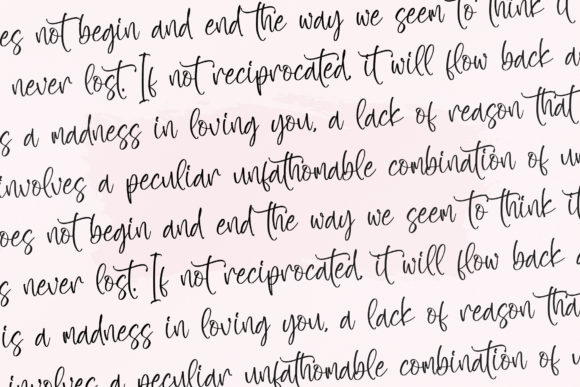 es not begin and end the way we seem to think it
never lost. If not reciprocated, it will flow back a
s a madness in loving you, a lack of reason that
involves a peculiar unfathomable combination of u
oes not begin and end the way we seem to think it
s never lost. If not reciprocated, it will flow back
is a madness in loving you, a lack of reason tha
involves a peculiar unfathomable combination of u